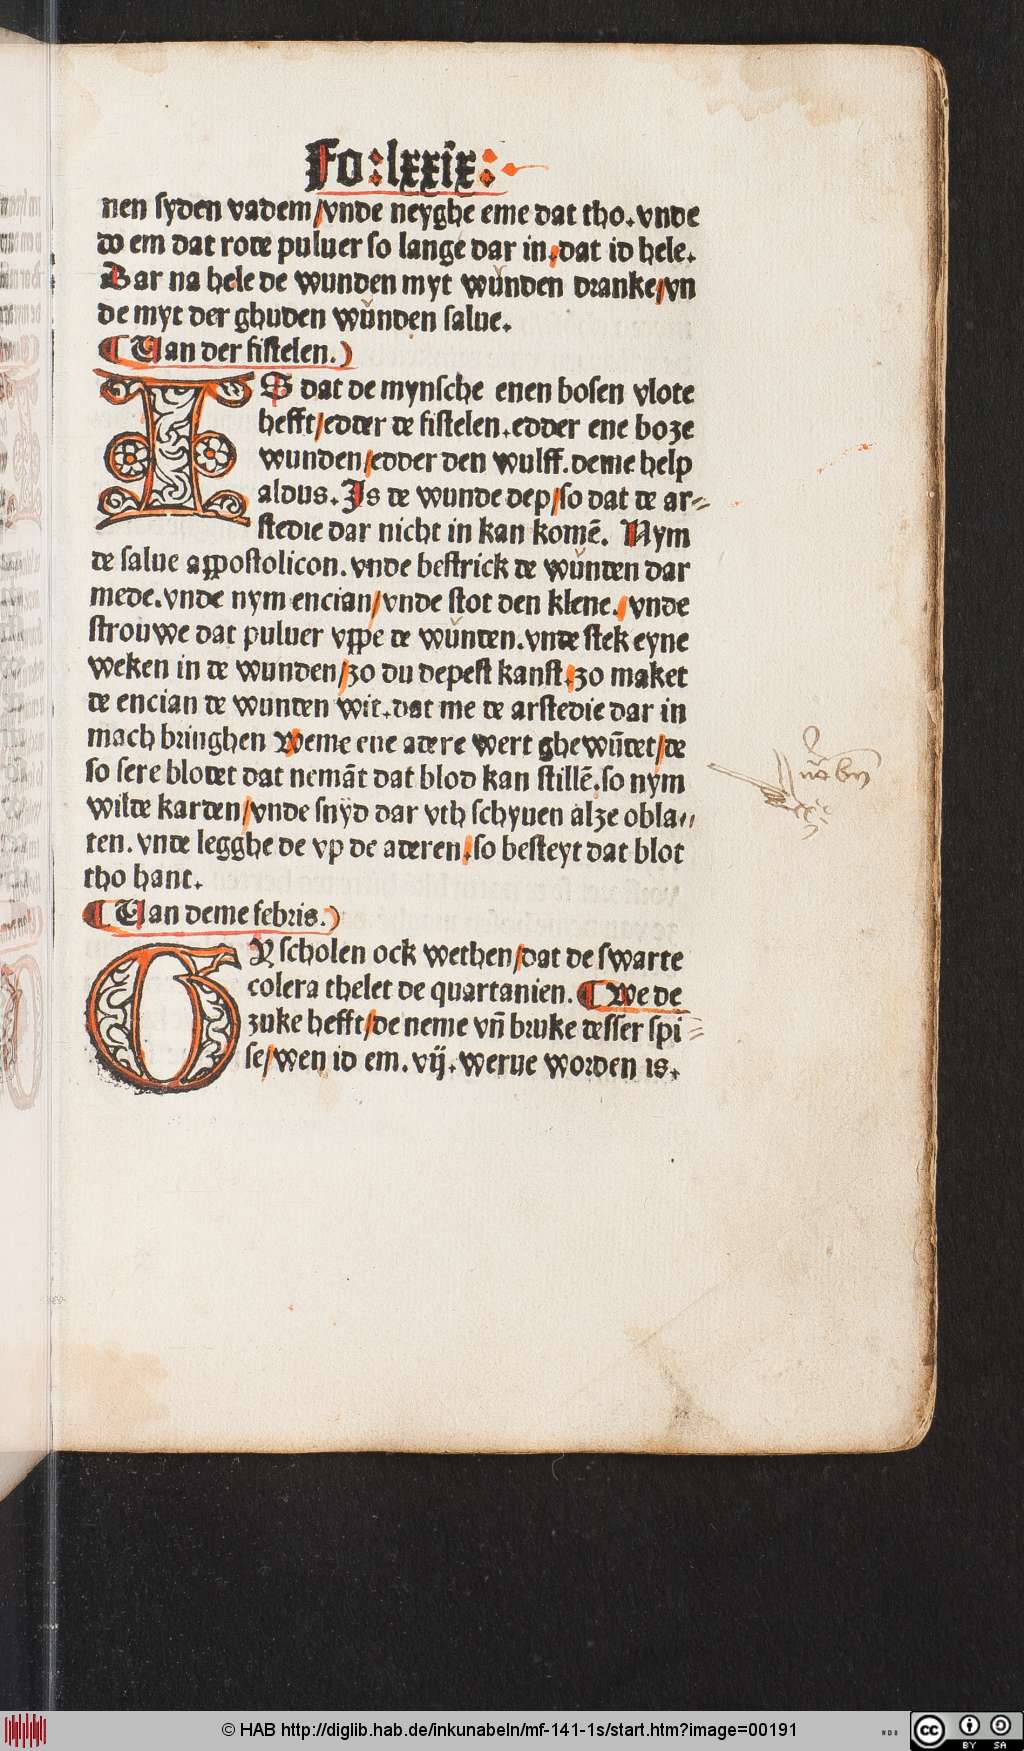 Fo:lxxix:
nen syden vadem/vnde neyghe eme dat tho. vnde
do em dat rode puluer so lange dar in. dat id hele.
Dar na hele de wunden myt wu̇nden dranke/vn
de myt der ghuden wu̇nden salue.
¶ Uan der fistelen.)
IS dat de mynsche enen bosen vlote
hefft/edder de fistelen. edder ene boze
wunden/edder den wulff. deme help
aldus. Is de wunde dep/so dat de ar⸗
stedie dar nicht in kan komē. Nym
de salue appostolicon. vnde bestrick de wu̇nden dar
mede. vnde nym encian/vnde stot den klene. vnde
strouwe dat puluer vppe de wu̇nden. vnde stek eyne
weken in de wunden/zo du depest kanst. zo maket
de encian de wunden wit. dat me de arstedie dar in
mach bringhen Weme ene adere wert ghewūdet/de
so sere blodet dat nemāt dat blod kan stillē. so nym
wilde karden/vnde snyd dar vth schyuen alze obla⸗
ten. vnde legghe de vp de aderen. so besteyt dat blot
tho hant.
¶ Uan deme febris.)
GY scholen ock wethen/dat de swarte
colera thelet de quartanien. ¶ We de
zuke hefft/de neme vn̄ bruke desser spi⸗
se/wen id em. vij. werue worden is.
© HAB http://diglib.hab.de/inkunabeln/mf-141-1s/start.htm?image=00191
WDB
cc BY SA